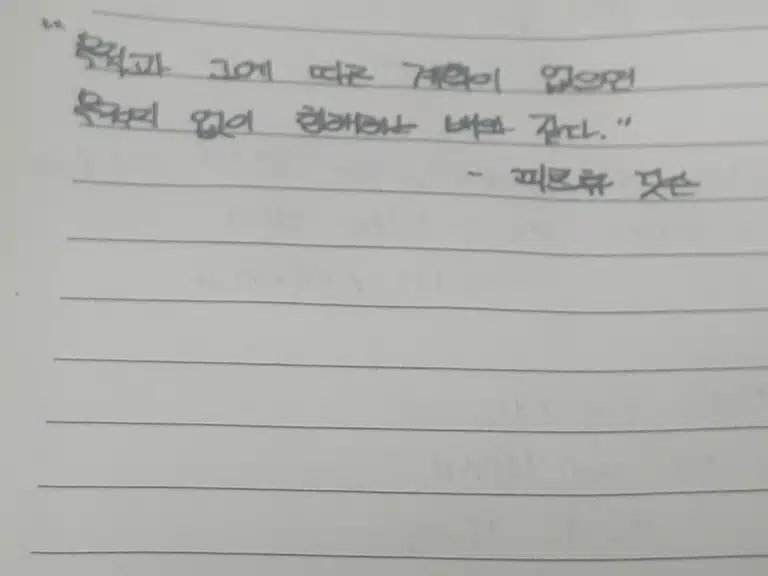 “목적과 그에 따른 계획이 없으면
목적지 없이 항해하는 배와 같다.”
- 피츠휴 닷슨